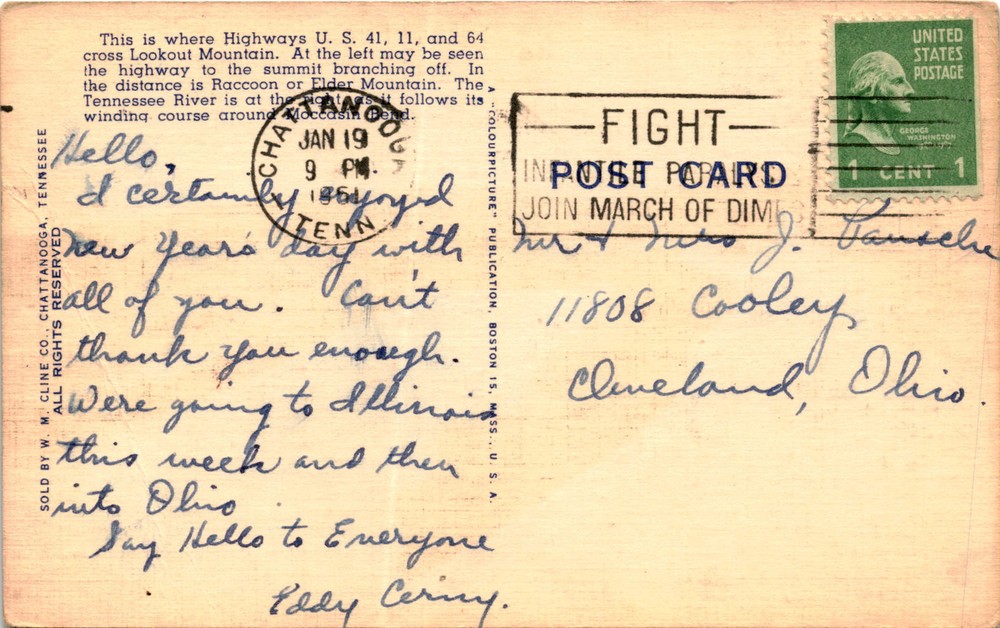 This is where Highways U. S. 41, 11, and 64
cross Lookout Mountain. At the left may be seen
the highway to the summit branching off. In
the distance is Raccoon or Elder Mountain. The
Tennessee River is at the right as it follows its
winding course around Moccasin Bend.
CHATTANOOGA
JAN 19
9 PM
1951
TENN.
Hello,
I certainly enjoyed
new Years day with
all of you. Can't
thank you enough.
We're going to Illinois
this week and then
into Ohio
Say Hello to Everyone
Eddy Cerny.
SOLD BY W. M. CLINE CO., CHATTANOOGA, TENNESSEE
ALL RIGHTS RESERVED
A "COLOURPICTURE" PUBLICATION, BOSTON 15, MASS., U. S. A.
FIGHT
INFANTILE PARALYSIS
JOIN MARCH OF DIMES
POST CARD
UNITED
STATES
POSTAGE
GEORGE
WASHINGTON
1 CENT 1
Mr & Mrs J.
11808 Cooley
Cleveland, Ohio.